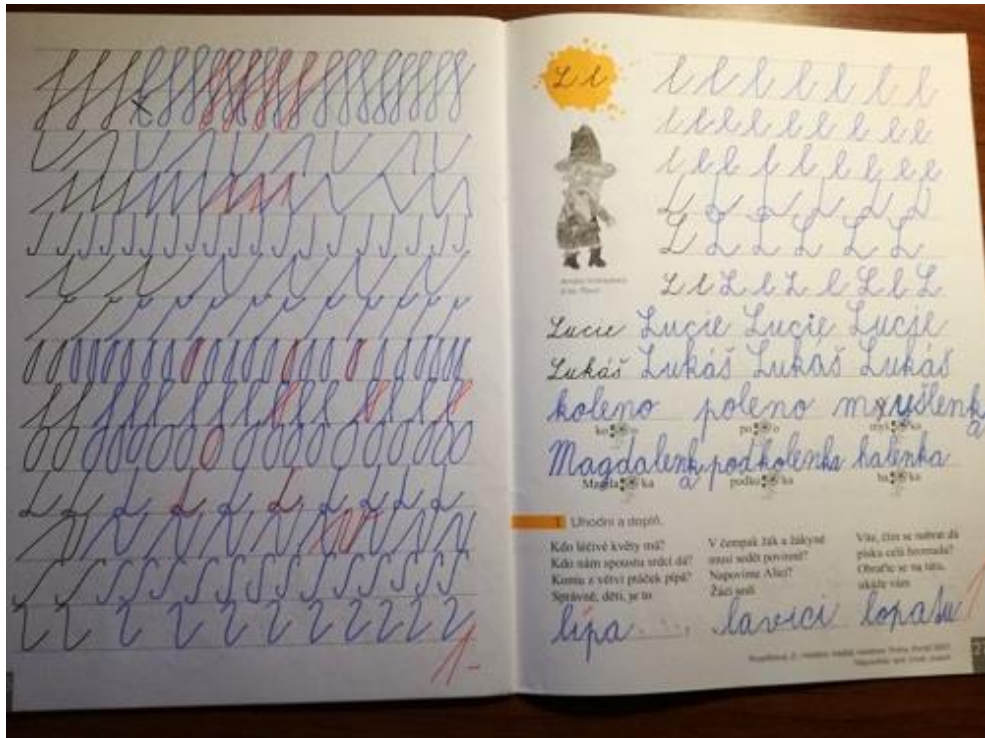 1-
L l
l l l l l l l
l l l l l l l l l
l l l l l l l l l
L L L L L L
L L L L L L
L l L l L l L l L
Lucie Lucie Lucie Lucie
Lukáš Lukáš Lukáš Lukáš
koleno poleno myšlenka
ko o po o myš ka
Magdalenka podkolenka halenka
Magda ka podko ka ha ka
1 Uhodni a doplň.
Kdo léčivé květy má?
Kdo nám spoustu srdcí dá?
Komu z větví ptáček pípá?
Správně, děti, je to
lípa
V čempak žák a žákyně
musí sedět povinně?
Napovíme Alici?
Žáci sedí
lavici
Víte, čím se nabrat dá
písku celá hromada?
Obraťte se na tátu,
ukáže vám
lopatu
1